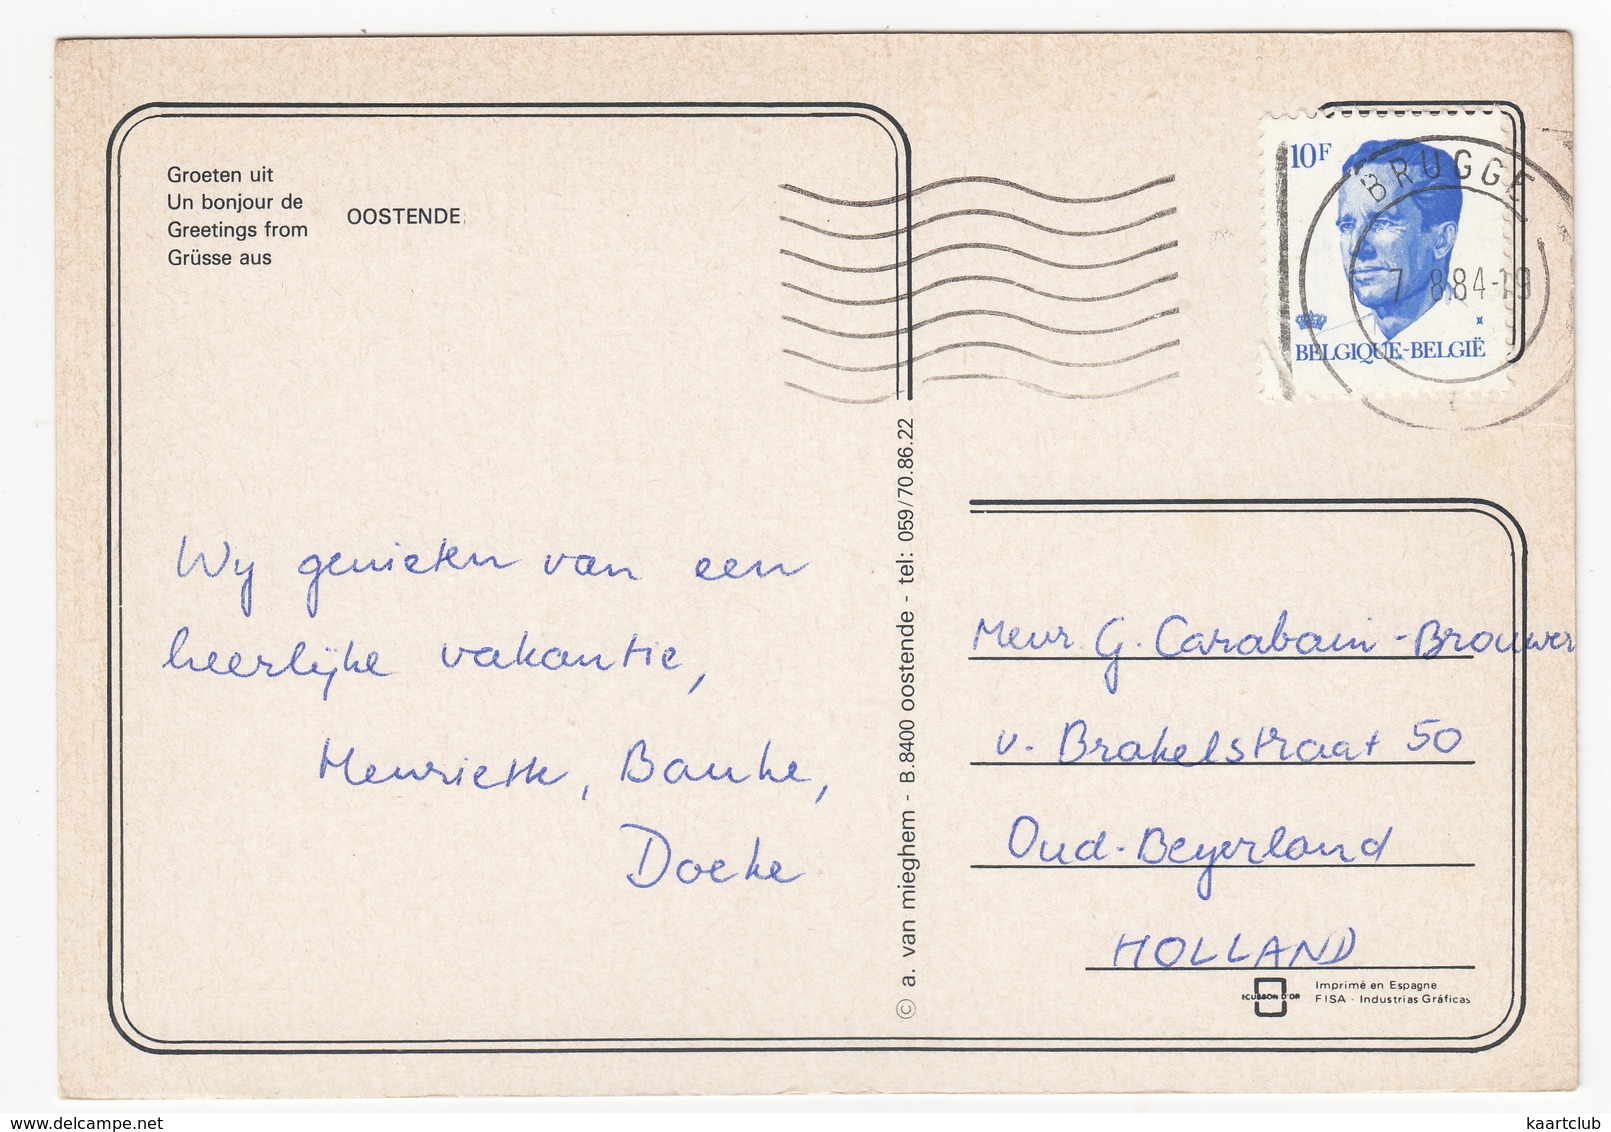 Groeten uit
Un bonjour de
Greetings from
Grüsse aus
OOSTENDE
Wij genieten van een
heerlijke vakantie,
Henriette, Bauke,
Doeke
© a. van mieghem - B.8400 oostende - tel: 059/70.86.22
10F
BELGIQUE-BELGIË
BRUGGE
7 8.84-19
Mevr. G. Carabain-Brouwer
v. Brakelstraat 50
Oud-Beyerland
HOLLAND
ICUSSON D'OR
Imprimé en Espagne
FISA - Industrias Gráficas
delcampe.net
kaartclub